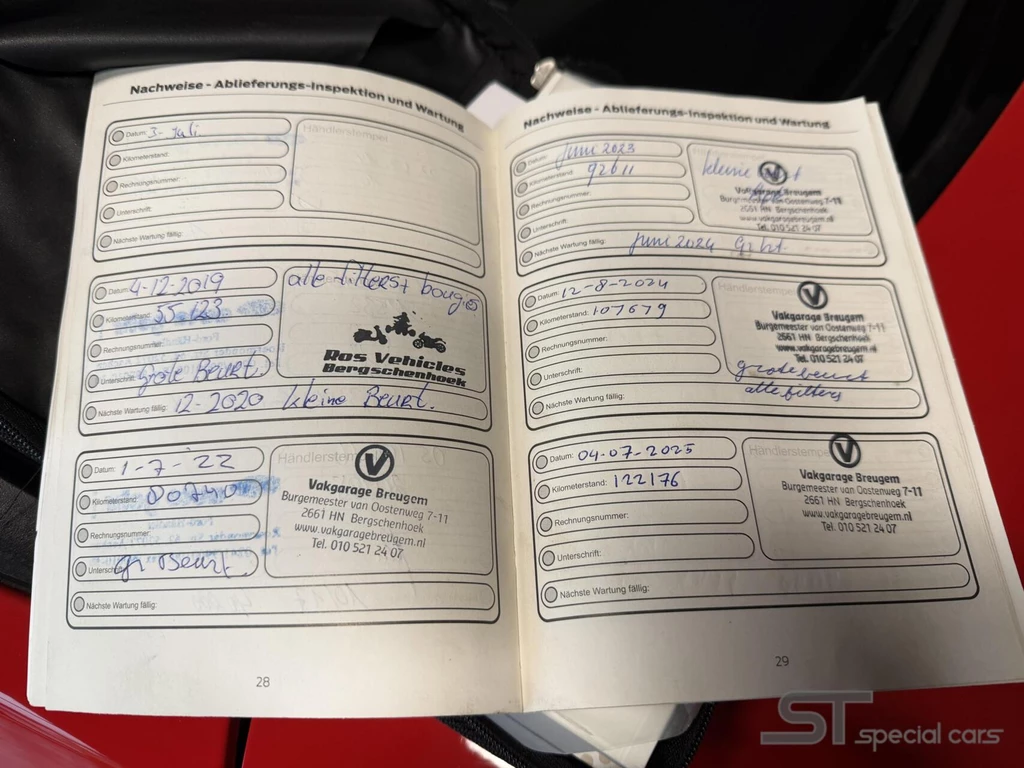 Nachweise - Ablieferungs-Inspektion und Wartung
Datum: 3- Juli
Händlerstempel
Kilometerstand:
Rechnungsnummer:
Unterschrift:
Nächste Wartung fällig:
Datum: 4-12-2019
alle filters+ bougies
Kilometerstand: 55123
Rechnungsnummer:
Ros Vehicles
Bergschenhoek
Unterschrift: Grote Beurt
Nächste Wartung fällig: 12-2020 kleine Beurt.
Datum: 1-7-'22
Händlerstempel
Kilometerstand:
Rechnungsnummer:
Unterschrift: gr Beurt
Vakgarage Breugem
Burgemeester van Oostenweg 7-11
2661 HN Bergschenhoek
www.vakgaragebreugem.nl
Tel. 010 521 24 07
Nächste Wartung fällig:
28
Nachweise - Ablieferungs-Inspektion und Wartung
Datum: juni 2023
Kilometerstand: 92611
Rechnungsnummer:
Unterschrift:
kleine
Vakgarage Breugem
Burgemeester van Oostenweg 7-11
2661 HN Bergschenhoek
www.vakgaragebreugem.nl
Tel. 010 521 24 07
Nächste Wartung fällig: juni 2024 Gr bt.
Datum: 12-8-2024
Händlerstempel
Kilometerstand: 107679
Rechnungsnummer:
Unterschrift:
Vakgarage Breugem
Burgemeester van Oostenweg 7-11
2661 HN Bergschenhoek
www.vakgaragebreugem.nl
Tel. 010 521 24 07
grote beurt
alle filters
Nächste Wartung fällig:
Datum: 04-07-2025
Händlerstempel
Kilometerstand: 122176
Rechnungsnummer:
Unterschrift:
Vakgarage Breugem
Burgemeester van Oostenweg 7-11
2661 HN Bergschenhoek
www.vakgaragebreugem.nl
Tel. 010 521 24 07
Nächste Wartung fällig:
29
ST special cars